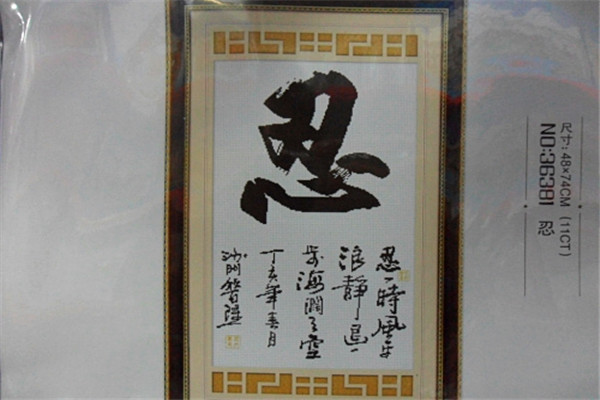 忍
忍一時風平
浪靜退一
步海闊天空
丁亥年春月
尺寸: 48×74CM (11CT)
NO:36381 忍